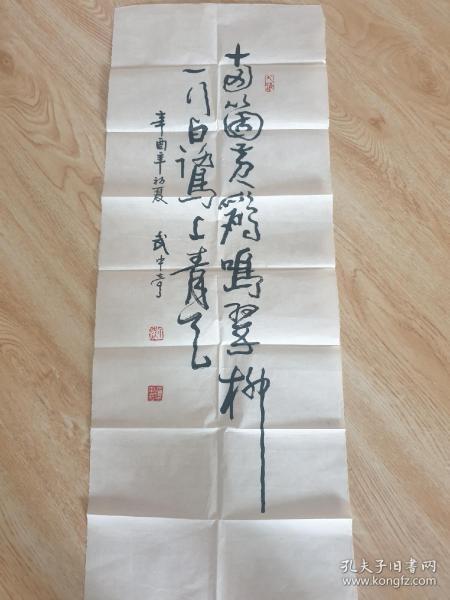 兩箇黃鸝鳴翠柳
一行白鷺上青天
辛酉年初夏 武中奇
孔夫子旧书网
www.kongfz.com